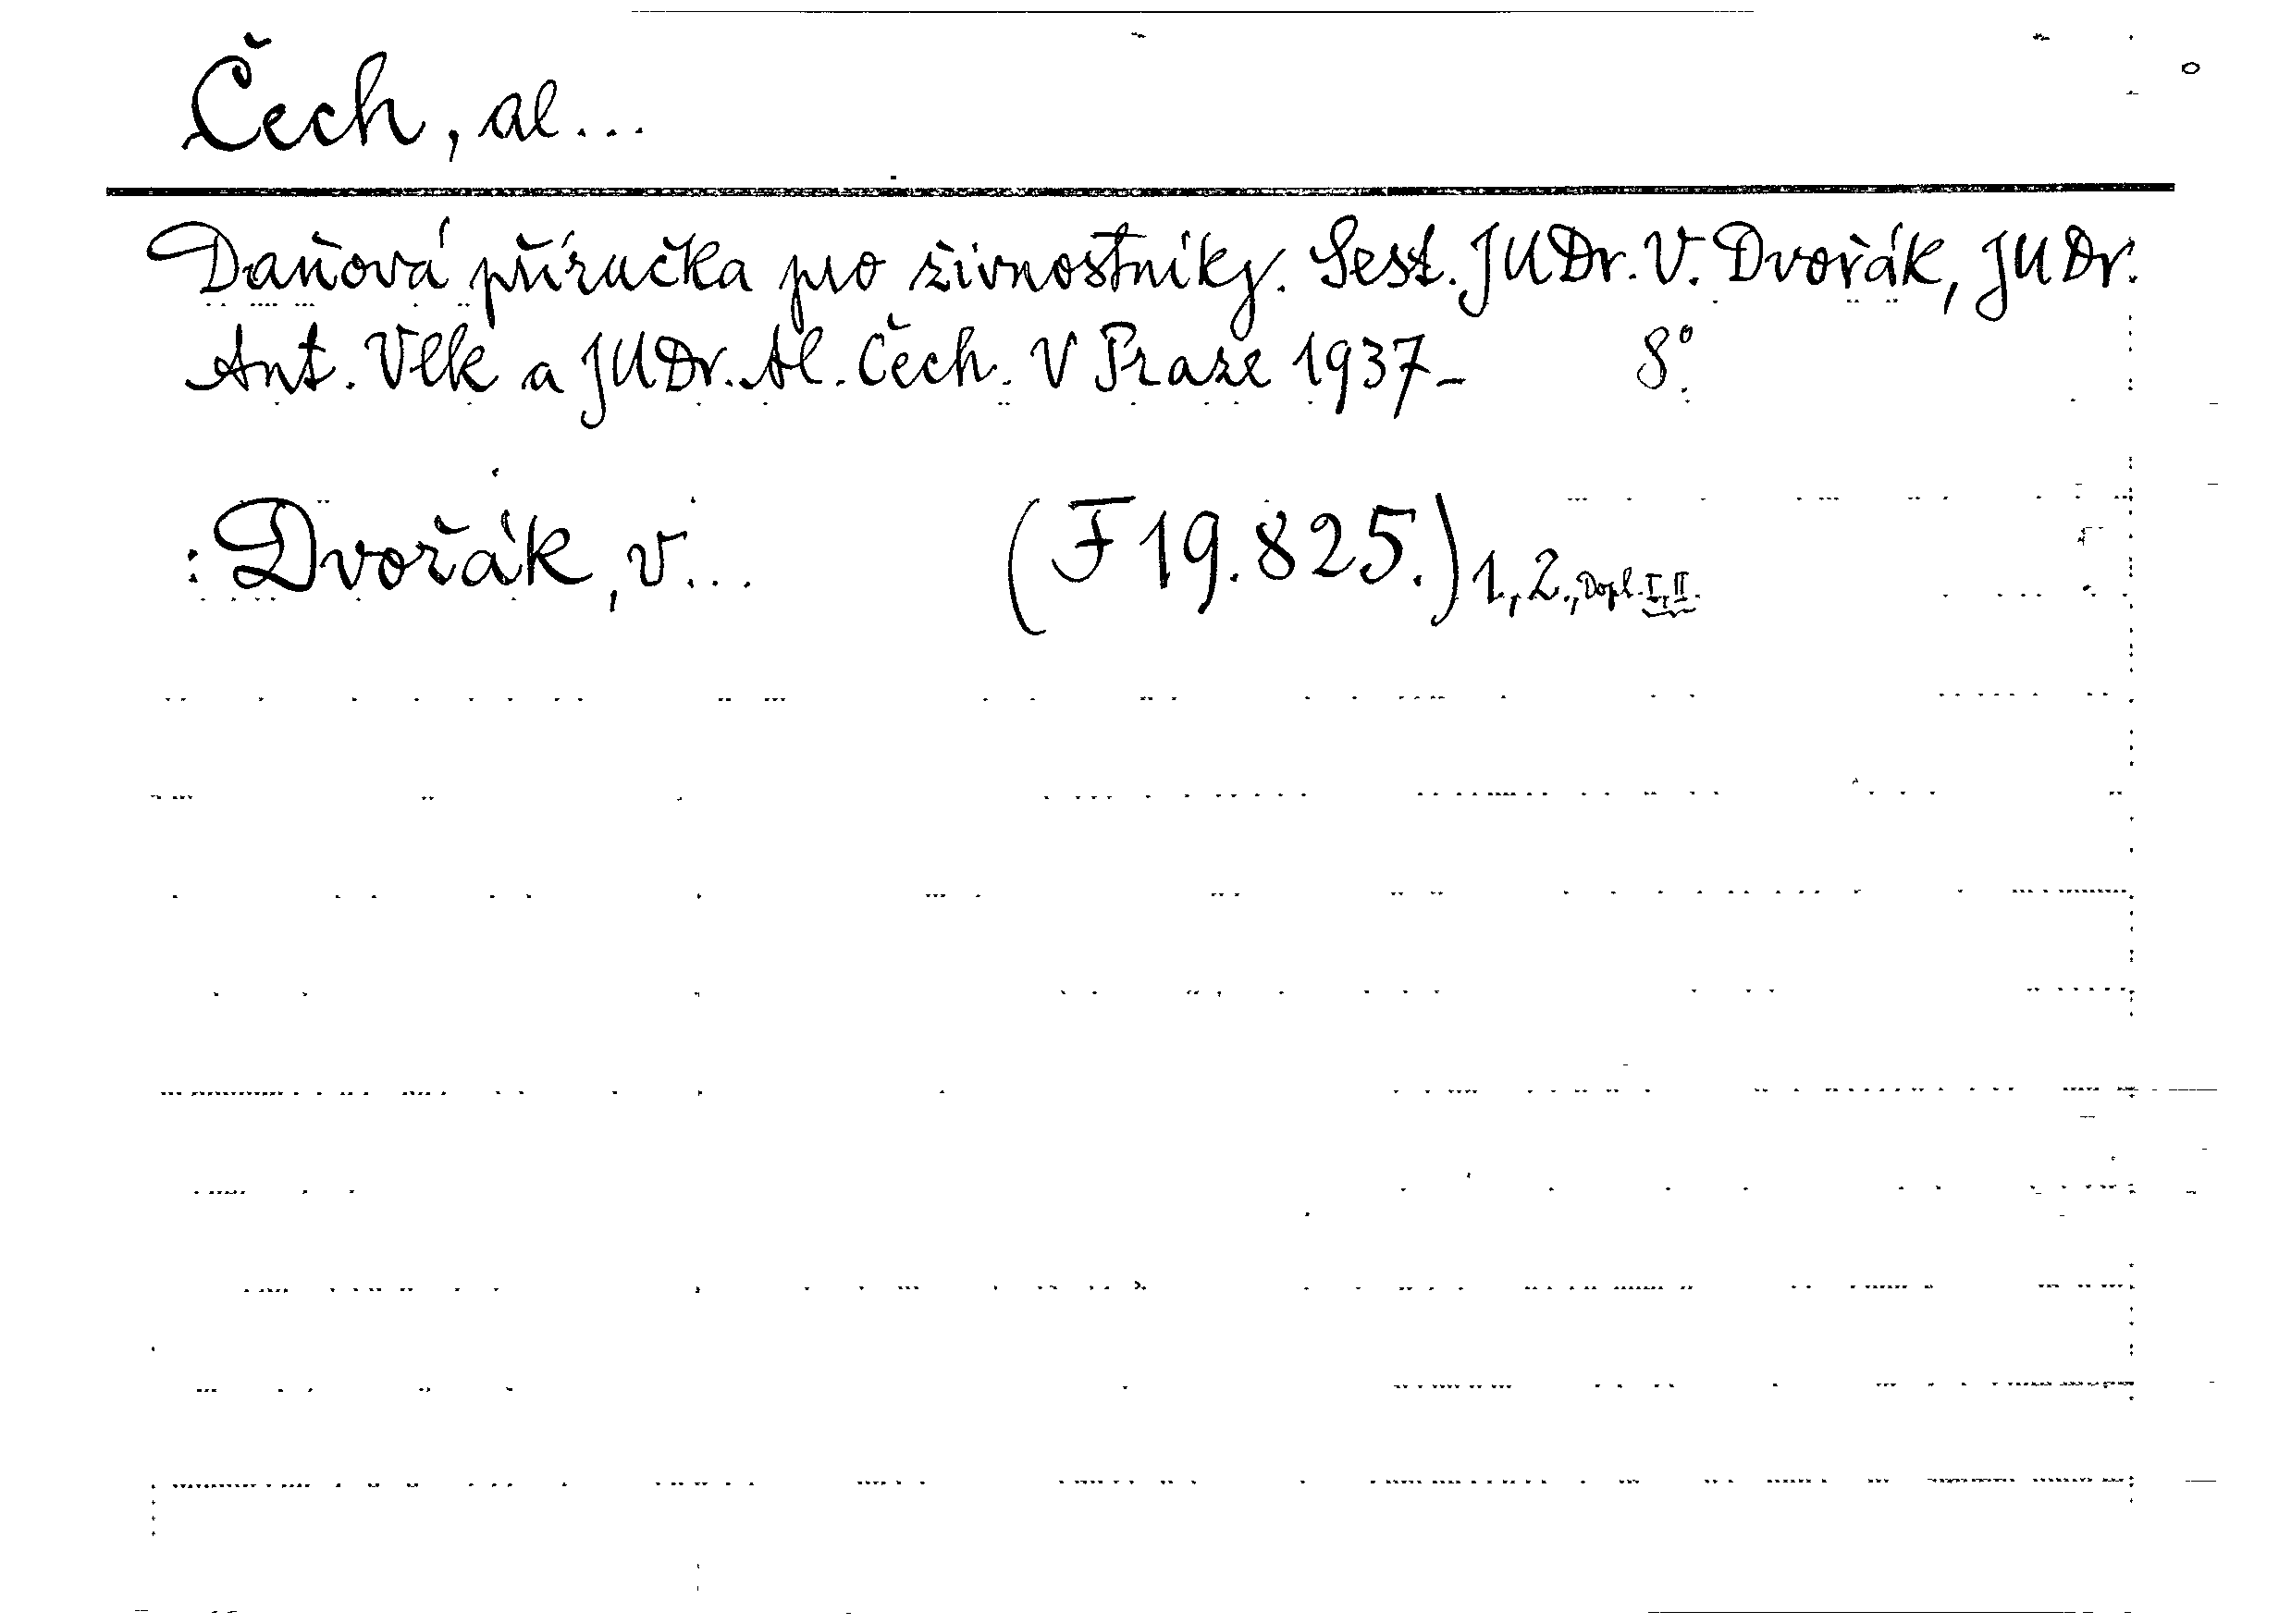 Čech, Al...
Daňová příručka pro živnostníky. Sest. JUDr. V. Dvořák, JUDr.
Ant. Vlk a JUDr. Al. Čech. V Praze 1937- 8°.
: Dvořák, V... (F 19.825.) 1, 2., Dopl. I, II.